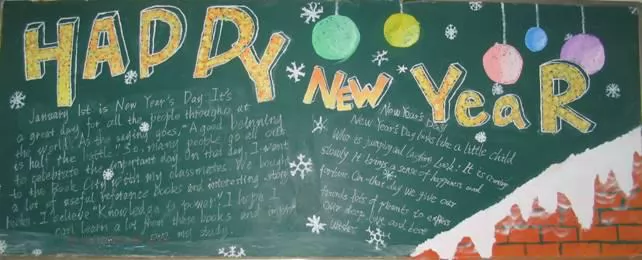 HAPPY
NEW YeaR
January 1st is New Year's Day. It's
a great day for all the people throughout
the world. As the saying goes, "A good beginning
is half the battle". So, many people go all out
to celebrate the important day. On that day, I went
to the Book City with my classmates. We bought
a lot of useful reference books and interesting story
books. I believe "Knowledge is power". I hope I
can learn a lot from these books and
my study.
New Year's Day
New Year's Day looks like a little child
Who is jumping and laughing. Look! It is coming
slowly. It brings a sense of happiness and
fortune. On that day we give our
parents lots of presents to express
our deep love and best
wishes.